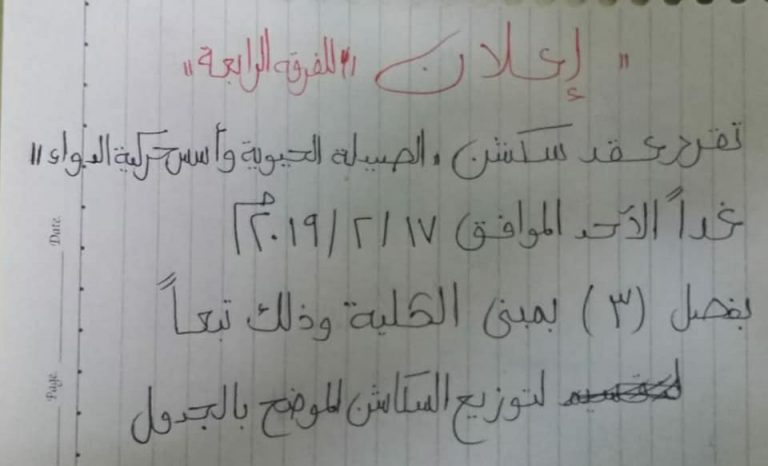 " إعلان " للفرقة الرابعة "
تقرر عقد سكشن " الصيدلة الحيوية وأسس حركية الدواء "
غداً الأحد الموافق ١٧ / ٢ / ٢٠١٩ م
بفصل (٣) بمبنى الكلية وذلك تبعاً
لتوزيع السكاشن الموضح بالجدول
Date
Page